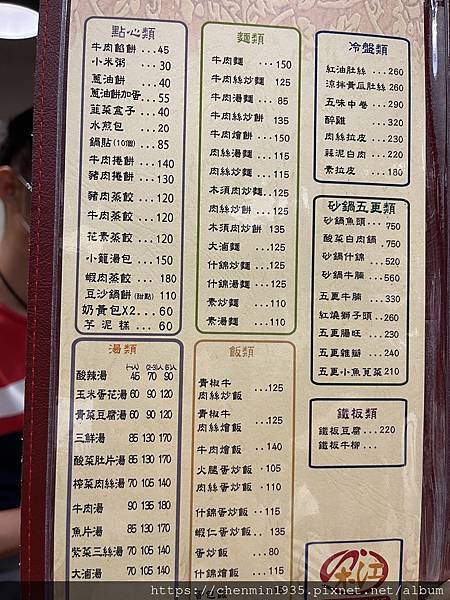 點心類
牛肉餡餅...45
小米粥...30
蔥油餅...40
蔥油餅加蛋...55
韮菜盒子...40
水煎包...20
鍋貼(10個)...85
牛肉捲餅...140
豬肉捲餅...130
豬肉蒸餃...120
牛肉蒸餃...120
花素蒸餃...120
小籠湯包...150
蝦肉蒸餃...180
豆沙鍋餅(甜點)110
奶黃包X2...60
芋泥糕...60
湯類
(一人) (2-3)人 6人
酸辣湯 45 70 90
玉米蛋花湯 60 90 120
青菜豆腐湯 60 90 120
三鮮湯 85 130 170
酸菜肚片湯 85 130 170
榨菜肉絲湯 70 105 140
牛肉湯 90 135 180
魚片湯 85 130 170
紫菜三絲湯 70 105 140
大滷湯 70 105 140
麵類
牛肉麵...150
牛肉絲炒麵 125
牛肉湯麵...85
牛肉絲炒餅 135
牛肉燴餅...150
肉絲湯麵...115
肉絲炒麵...115
木須肉炒麵...125
肉絲炒餅...125
木須肉炒餅 135
大滷麵...125
什錦炒麵...125
什錦湯麵...125
素炒麵...110
素湯麵...110
飯類
青椒牛
肉絲炒飯...125
青椒牛
肉絲燴飯...125
牛肉燴飯...140
火腿蛋炒飯·105
肉絲蛋炒飯·110
什錦蛋炒飯··115
蝦仁蛋炒飯..135
蛋炒飯...80
什錦燴飯...115
冷盤類
紅油肚絲...260
涼拌黃瓜肚絲...260
五味中卷...290
醉雞...320
肉絲拉皮...230
蒜泥白肉...220
素拉皮...180
砂鍋五更類
砂鍋魚頭...750
酸菜白肉鍋...750
砂鍋什錦...520
砂鍋牛腩...560
五更牛腩...330
紅燒獅子頭..260
五更腸旺...230
五更雜瓣...240
五更小魚莧菜210
鐵板類
鐵板豆腐...220
鐵板牛柳...
https://chenmin1935.pixnet.net/album